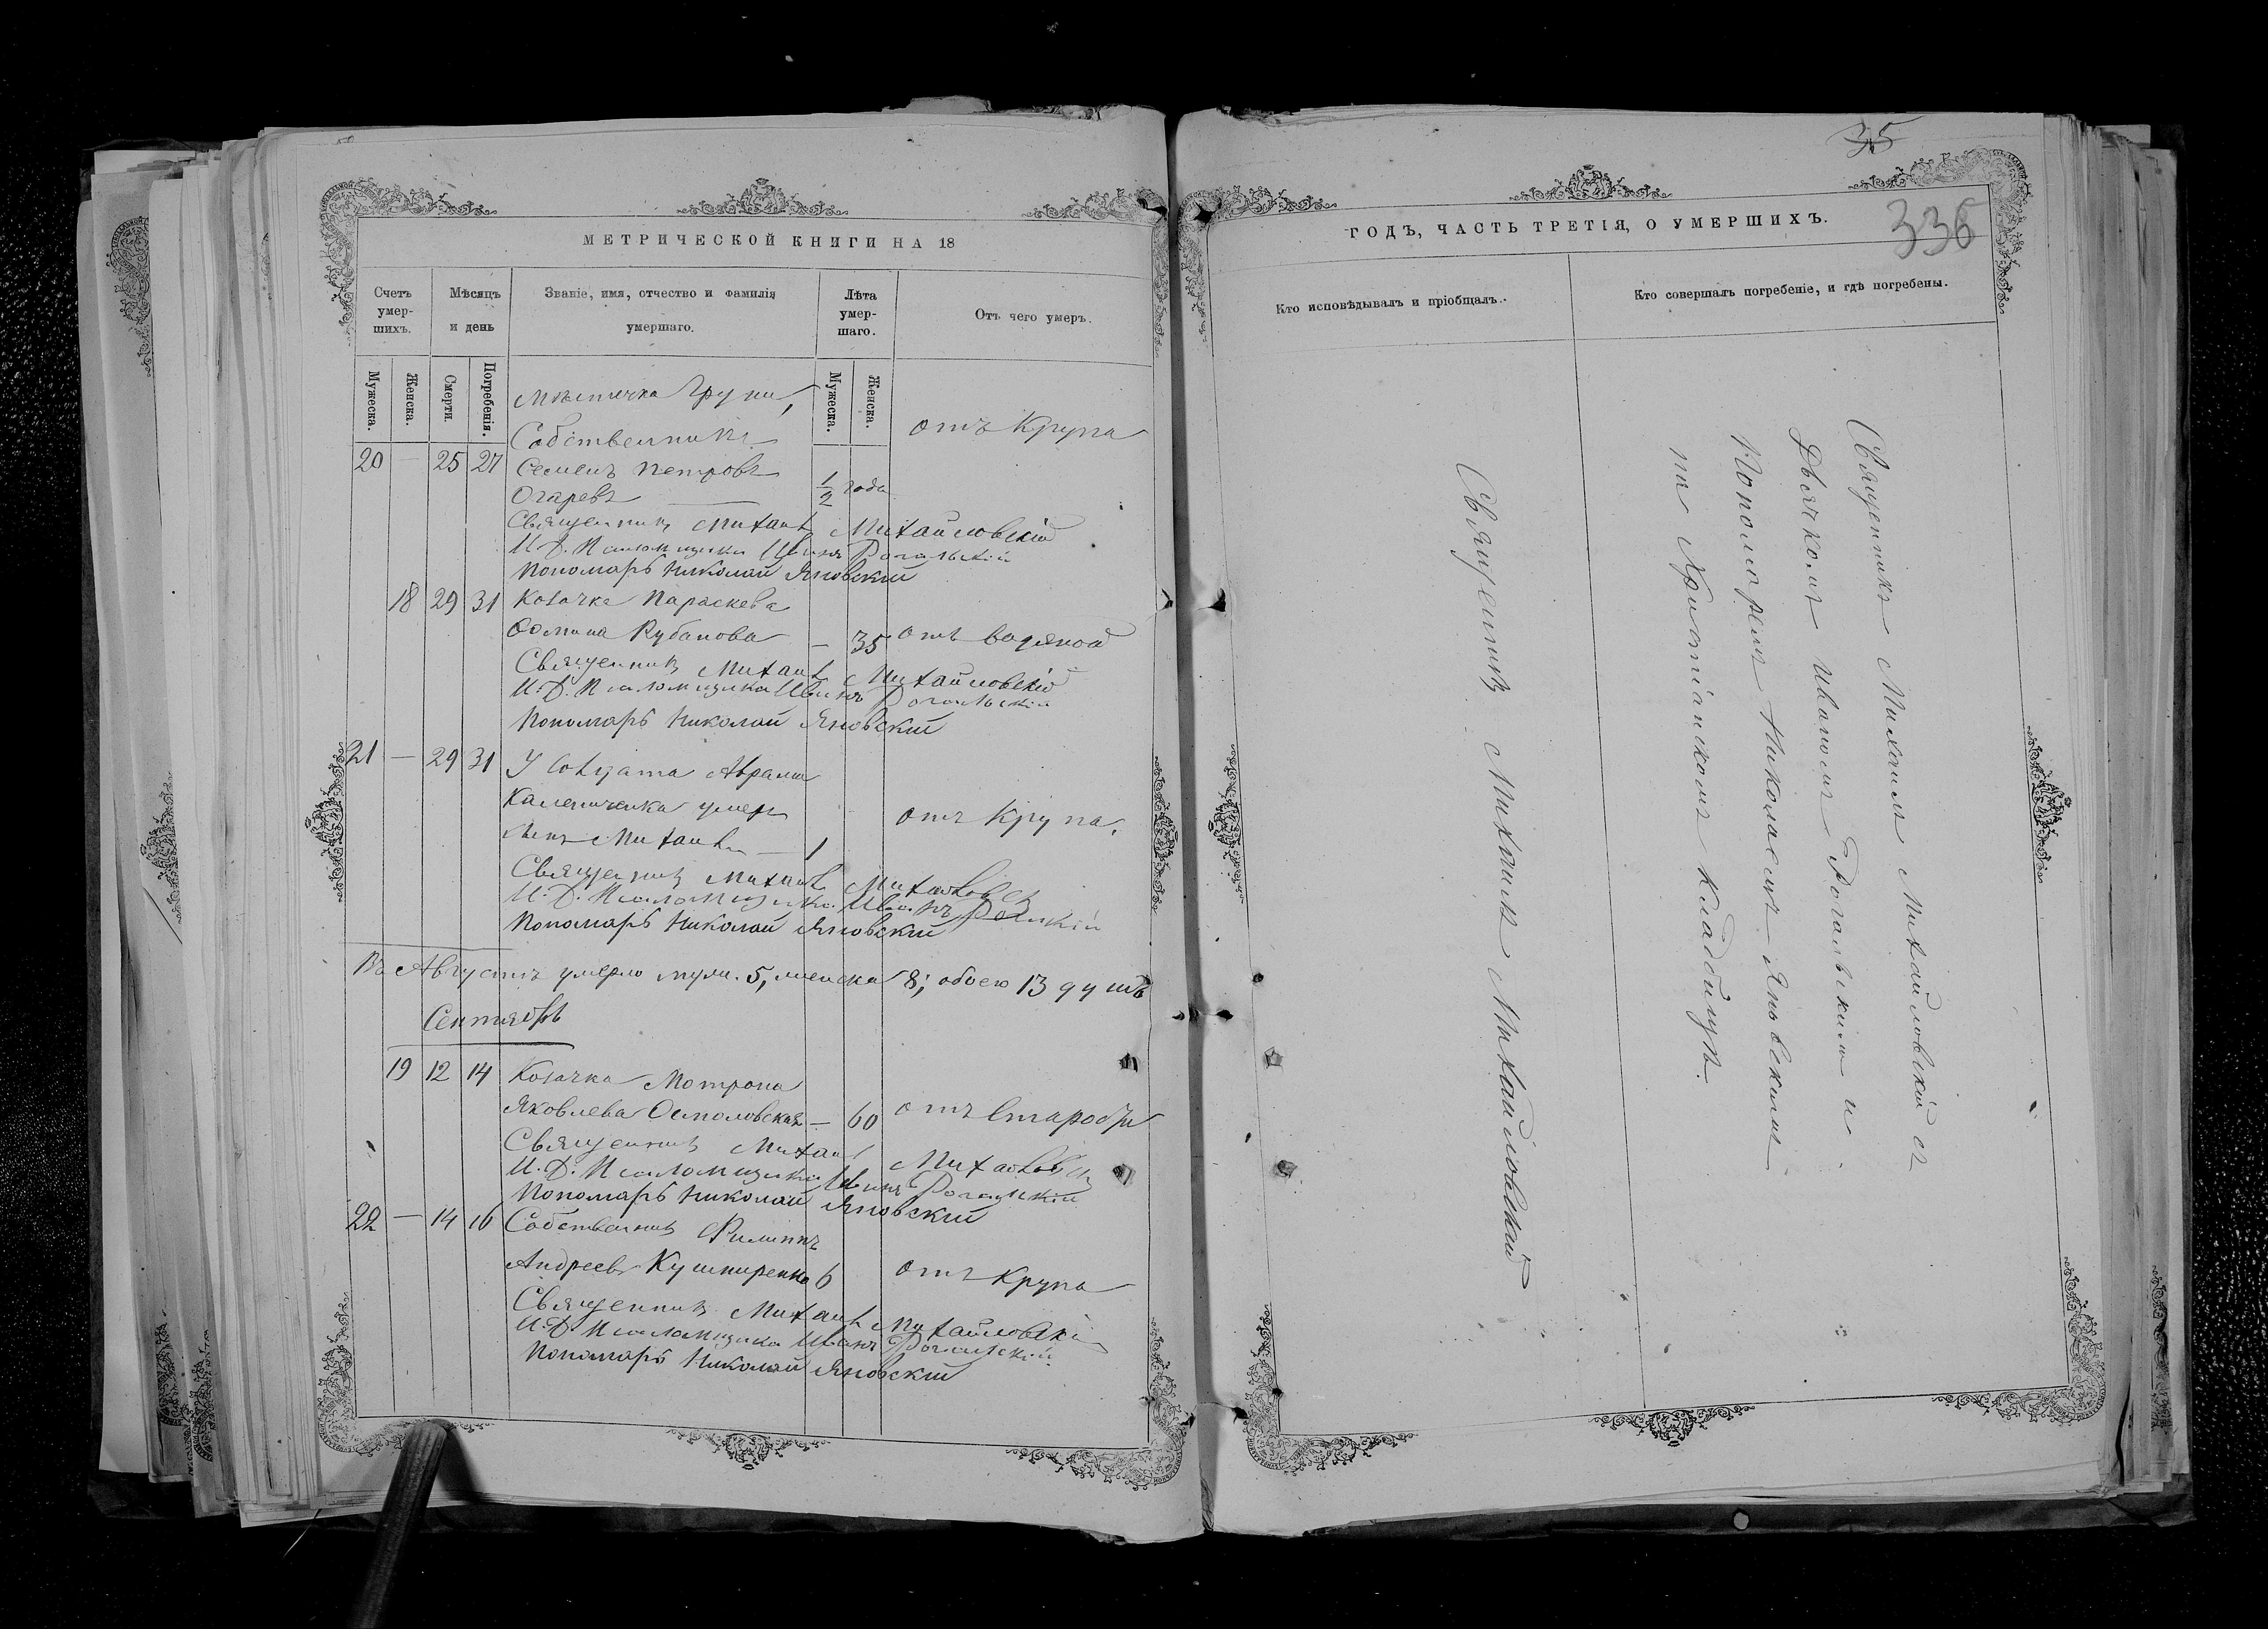 МЕТРИЧЕСКОЙ КНИГИ НА 18
Счетъ умер-шихъ.
Мѣсяцъ и день
Званіе, имя, отчество и фамилія умершаго.
Лѣта умер-шаго.
Отъ чего умеръ.
Мужеска.
Женска.
Смерти.
Погребенія.
Мужеска.
Женска.
Мѣстечка Груни,
Собственника
отъ Крупа
20 — 25 27 Семенъ Петровъ
Огаревъ — 1/2 года
Священникъ Михаилъ Михайловскій
И.Д. Псаломщика Иванъ Рогальскій
Пономарь Николай Яновскій
18 29 31 Козачка Параскева
Рубанова — 35 отъ водяной
Священникъ Михаилъ Михайловскій
И.Д. Псаломщика Иванъ Рогальскій
Пономарь Николай Яновскій
21 — 29 31 У Солдата Аврама
Калениченка умеръ
сынъ Михаилъ — 1 отъ Крупа.
Священникъ Михаилъ
И.Д. Псаломщика Иванъ
Пономарь Николай Яновскій
Въ Августѣ умерло муж. 5, женска 8; обоего 13 душъ
Сентябрь
19 12 14 Козачка Мотрона
Яковлева Осмоловская — 60 отъ Старости
Священникъ Михаилъ
И.Д. Псаломщика Иванъ Рогальскій
Пономарь Николай Яновскій
22 — 14 16 Собственникъ Филиппъ
Андреевъ Кушниренко 6 отъ Крупа
Священникъ Михаилъ Михайловскій
И.Д. Псаломщика Иванъ Рогальскій
Пономарь Николай Яновскій
35
336
ГОДЪ, ЧАСТЬ ТРЕТІЯ, О УМЕРШИХЪ.
Кто исповѣдывалъ и пріобщалъ.
Кто совершалъ погребеніе, и гдѣ погребены.
Священникъ Михаилъ Михайловскій
Священникъ Михаилъ Михайловскій съ
Дьячкомъ Иваномъ Рогальскимъ и
Пономаремъ Николаемъ Яновскимъ
на Христіанскомъ кладбищѣ.